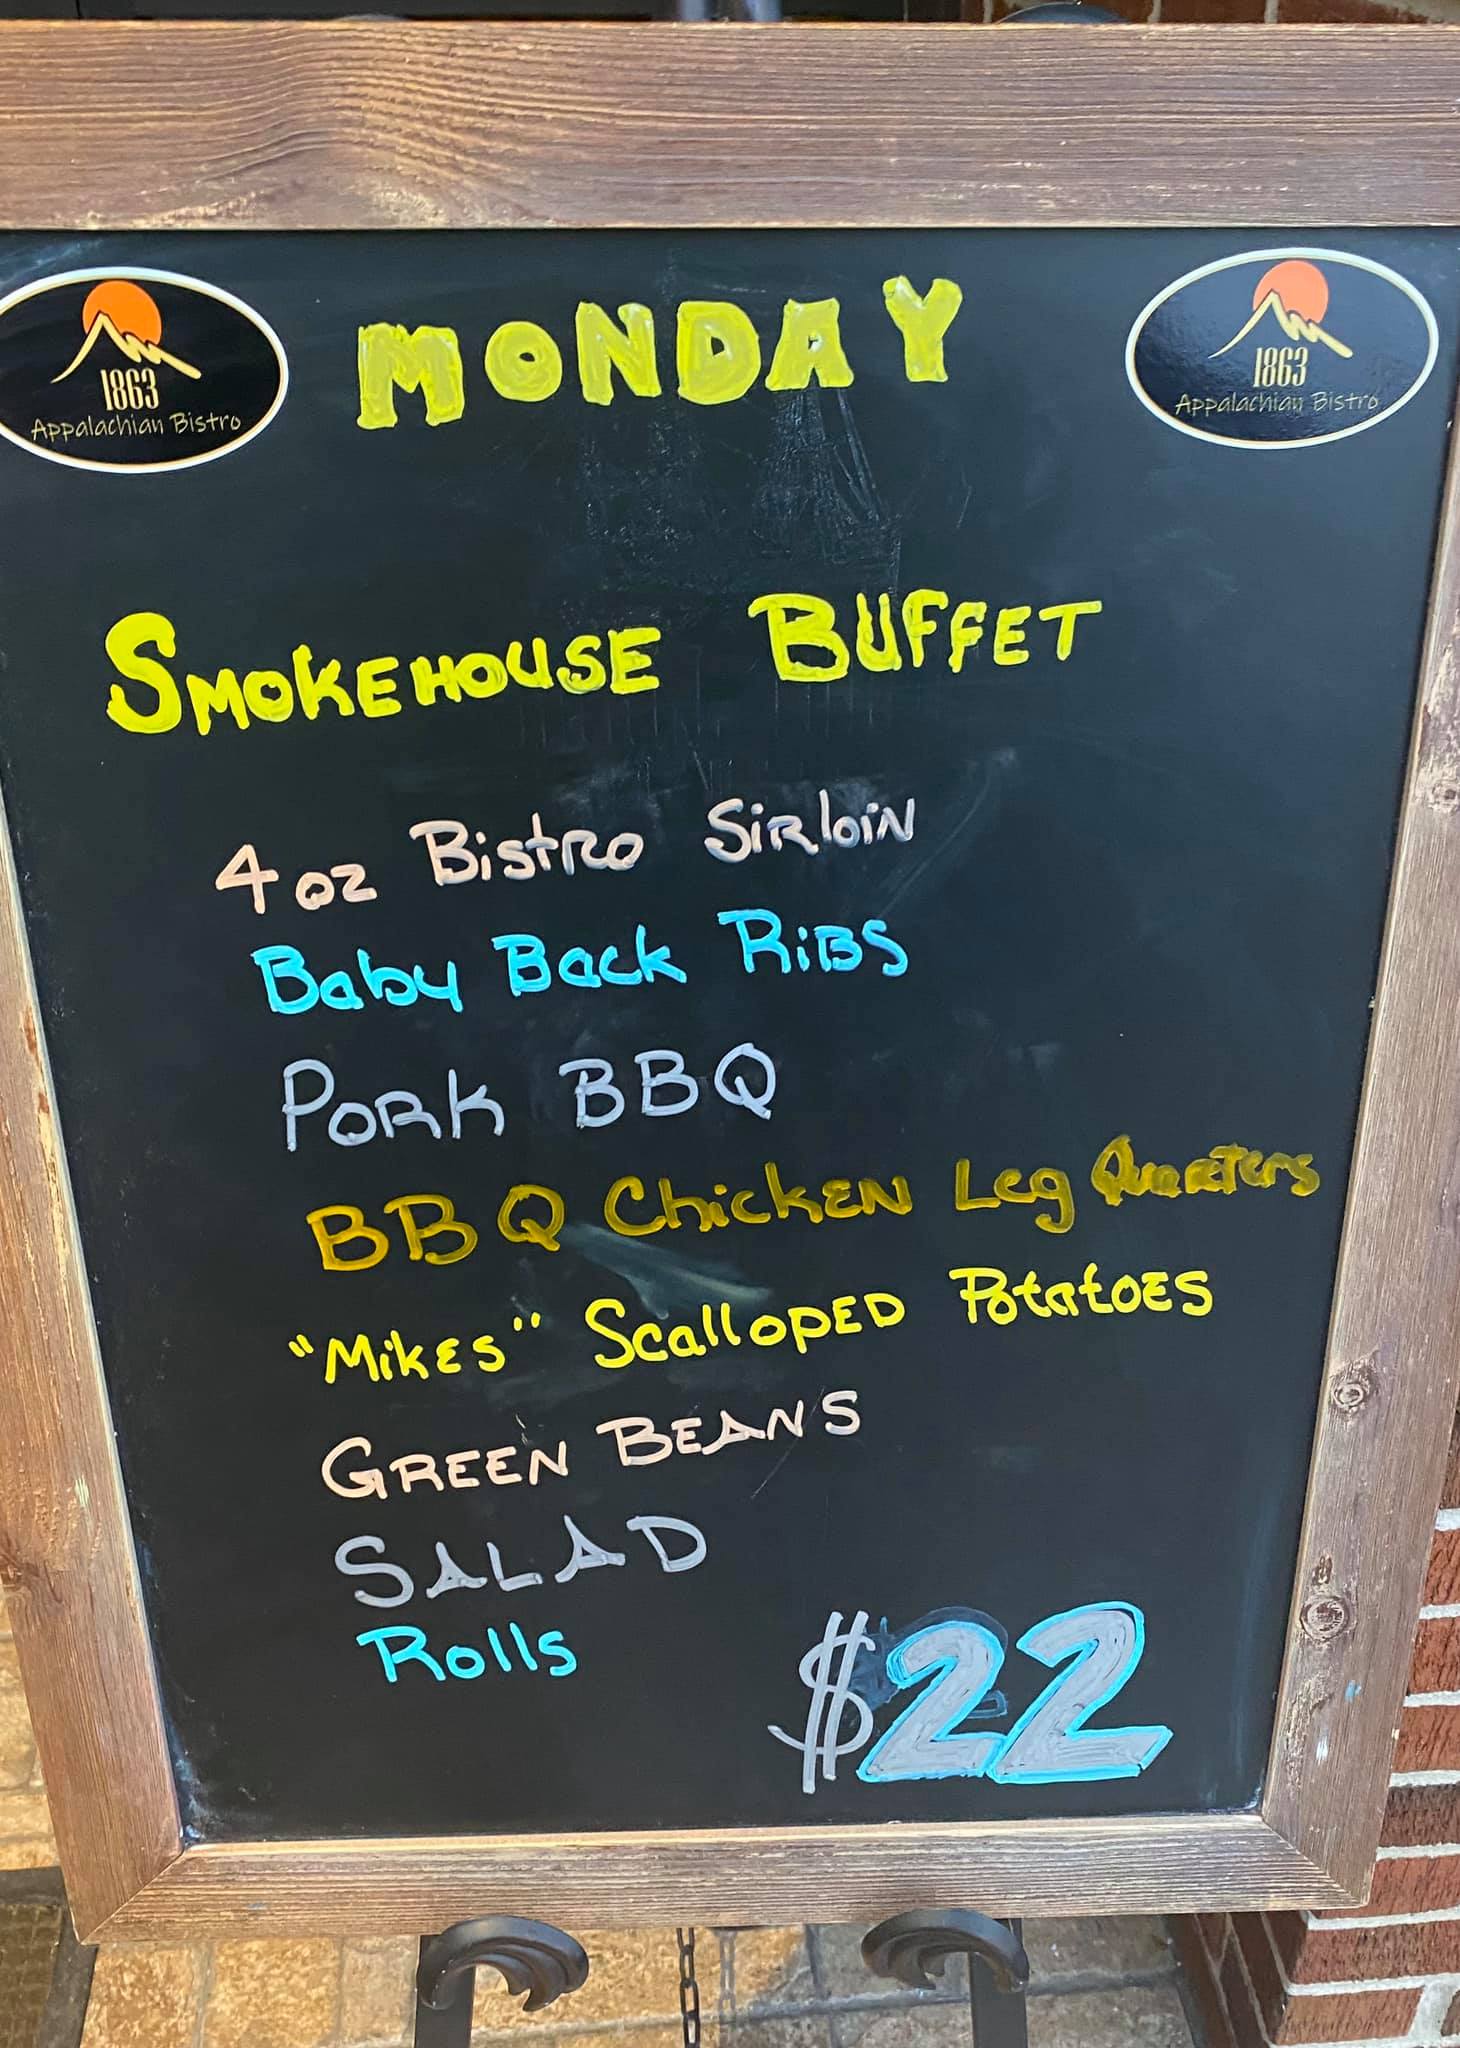 MONDAY
1863
Appalachian Bistro
1863
Appalachian Bistro
SMOKEHOUSE BUFFET
4 oz Bistro Sirloin
Baby Back Ribs
PORK BBQ
BBQ Chicken Leg Quarters
"Mikes" Scalloped Potatoes
GREEN BEANS
SALAD
Rolls
$22